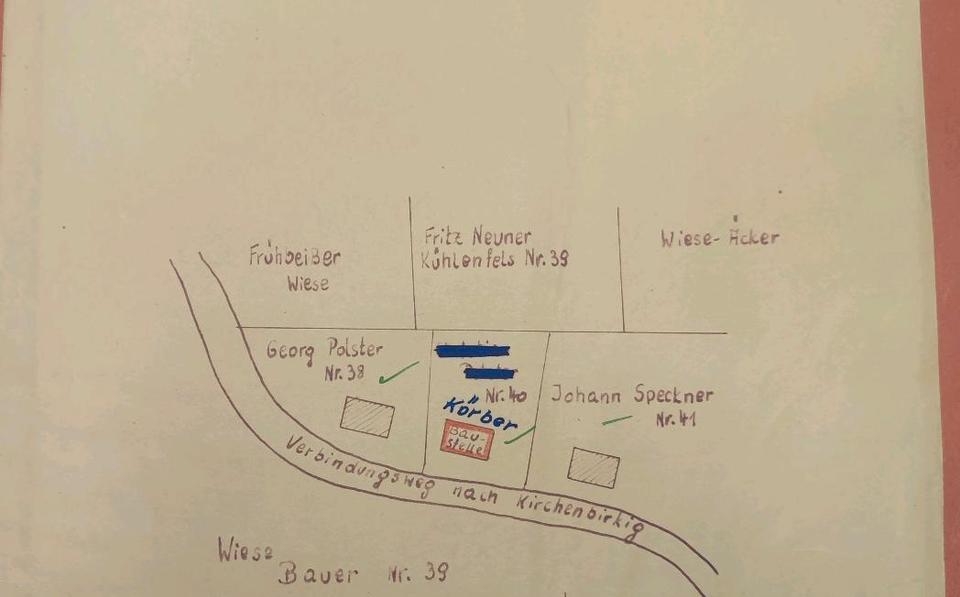 Frühbeißer
Wiese
Fritz Neuner
Kühlenfels Nr. 39
Wiese- Äcker
Georg Polster
Nr. 38
Nr. 40
Körber
Bau-
stelle
Johann Speckner
Nr. 41
Verbindungsweg nach Kirchenbirkig
Wiese
Bauer Nr. 39